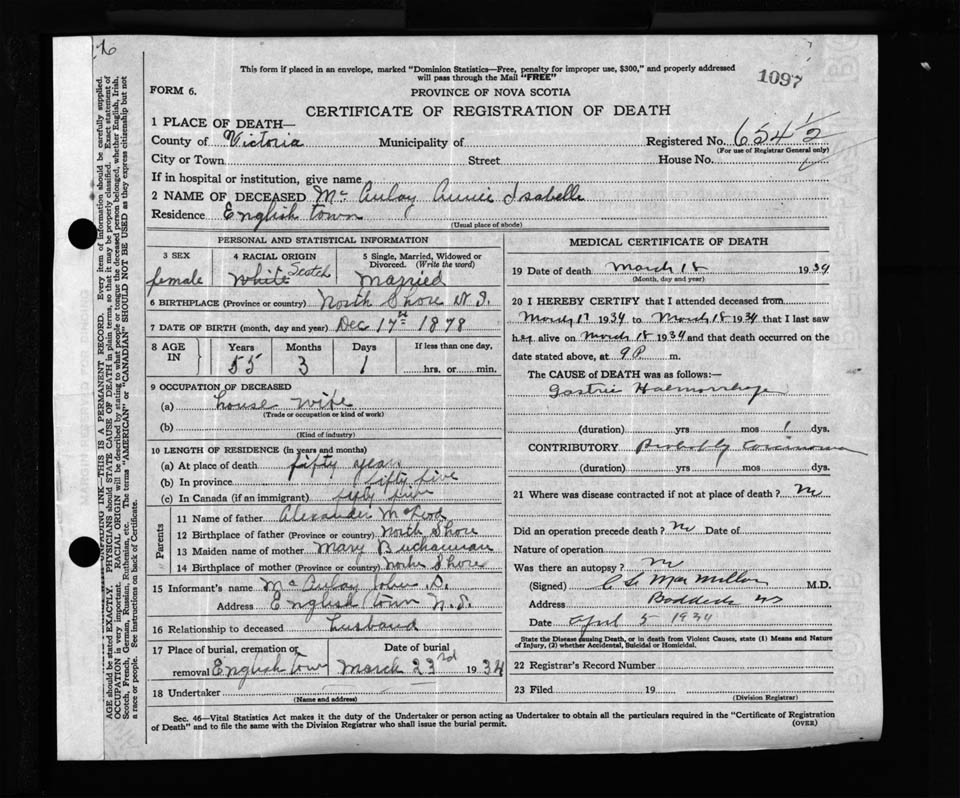 This form if placed in an envelope, marked "Dominion Statistics—Free, penalty for improper use, $300," and properly addressed
will pass through the Mail "FREE"
1097
FORM 6.
PROVINCE OF NOVA SCOTIA
CERTIFICATE OF REGISTRATION OF DEATH
1 PLACE OF DEATH—
County of Victoria Municipality of Registered No. 654 1/2
(For use of Registrar General only)
City or Town Street House No.
If in hospital or institution, give name
2 NAME OF DECEASED Mc Aulay Annie Isabell
Residence English town
(Usual place of abode)
PERSONAL AND STATISTICAL INFORMATION
3 SEX 4 RACIAL ORIGIN 5 Single, Married, Widowed or
Divorced. (Write the word)
female White Scotch Married
6 BIRTHPLACE (Province or country) North Shore N.S.
7 DATE OF BIRTH (month, day and year) Dec 17 1878
8 AGE IN Years Months Days If less than one day,
55 3 1 hrs. or min.
9 OCCUPATION OF DECEASED
(a) house wife
(Trade or occupation or kind of work)
(b)
(Kind of industry)
10 LENGTH OF RESIDENCE (in years and months)
(a) At place of death fifty years
(b) In province fifty five
(c) In Canada (if an immigrant) fifty five
Parents
11 Name of father Alexander McLeod
12 Birthplace of father (Province or country) North Shore
13 Maiden name of mother Mary Buchannan
14 Birthplace of mother (Province or country) North Shore
15 Informant's name Mc Aulay John D.
Address English town N.S.
16 Relationship to deceased husband
17 Place of burial, cremation or removal English town Date of burial March 23rd 1934
18 Undertaker
(Name and address)
MEDICAL CERTIFICATE OF DEATH
19 Date of death March 18 1934
(Month, day and year)
20 I HEREBY CERTIFY that I attended deceased from
March 17 1934 to March 18 1934 that I last saw
her alive on March 18 1934 and that death occurred on the
date stated above, at 9 P. m.
The CAUSE of DEATH was as follows:—
Gastric Haemorrhage
(duration) yrs mos 1 dys.
CONTRIBUTORY Probably Carcinoma
(duration) yrs mos dys.
21 Where was disease contracted if not at place of death? No
Did an operation precede death? No Date of
Nature of operation
Was there an autopsy? No
(Signed) MacMillan M.D.
Address Baddeck NS
Date April 5 1934
State the Disease causing Death, or in death from Violent Causes, state (1) Means and Nature
of Injury, (2) whether Accidental, Suicidal or Homicidal.
22 Registrar's Record Number
23 Filed 19
(Division Registrar)
Sec. 46—Vital Statistics Act makes it the duty of the Undertaker or person acting as Undertaker to obtain all the particulars required in the "Certificate of Registration
of Death" and to file the same with the Division Registrar who shall issue the burial permit. (OVER)
UNFADING INK—THIS IS A PERMANENT RECORD. Every item of information should be carefully supplied.
AGE should be stated EXACTLY. PHYSICIANS should STATE CAUSE OF DEATH in plain terms, so that it may be properly classified. Exact statement of
OCCUPATION is very important. RACIAL ORIGIN will be described by stating to what people or tongue the deceased person belonged, whether English, Irish,
Scotch, French, German, Russian, Ruthenian, etc. The terms "AMERICAN" or "CANADIAN" SHOULD NOT BE USED as they express citizenship but not
a race or people. See instructions on back of Certificate.